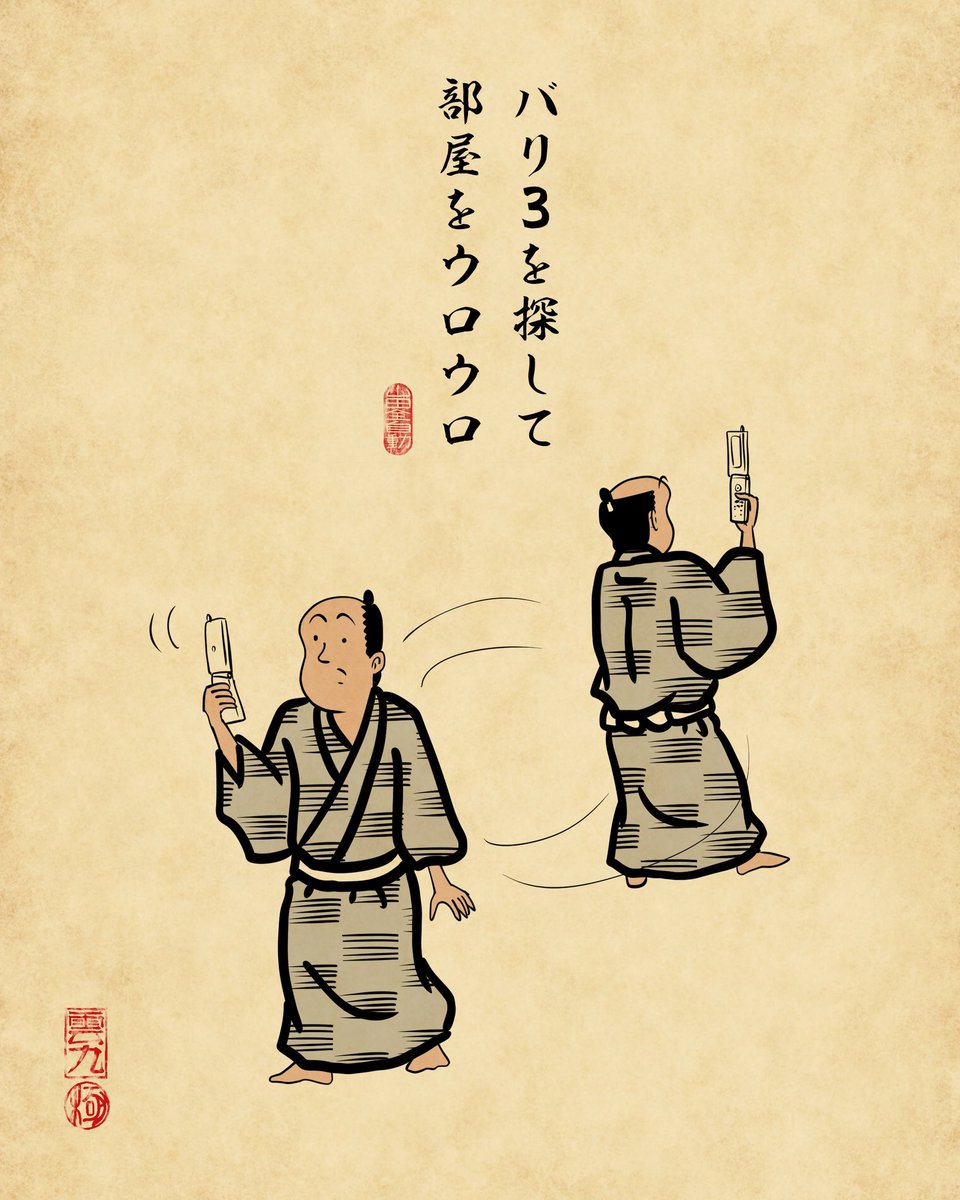 バリ3を探して
部屋をウロウロ